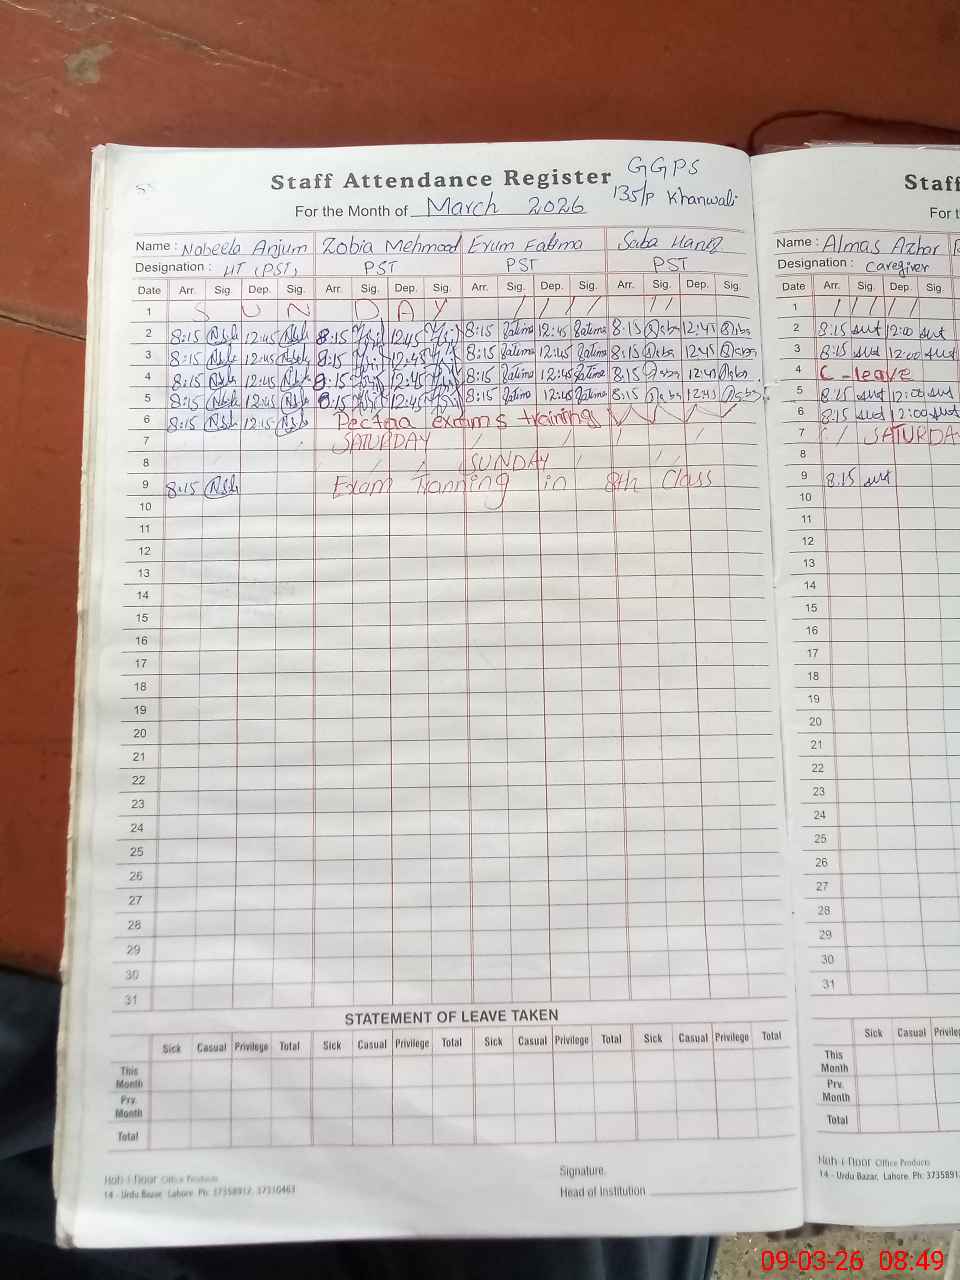 Staff Attendance Register
GGPS
135/P Khanwali
For the Month of March 2026
Name : Nabeela Anjum Zobia Mehmood Erum Fatima Saba
Designation : HT (PST) PST PST PST
Date Arr. Sig. Dep. Sig. Arr. Sig. Dep. Sig. Arr. Sig. Dep. Sig. Arr. Sig. Dep. Sig.
1 S U N D A Y
2 8:15 12:45 8:15 12:45 8:15 Fatima 12:45 Fatima 8:15 Saba 12:45 Saba
3 8:15 12:45 8:15 12:45 8:15 Fatima 12:45 Fatima 8:15 Saba 12:45 Saba
4 8:15 12:45 8:15 12:45 8:15 Fatima 12:45 Fatima 8:15 Saba 12:45 Saba
5 8:15 12:45 8:15 12:45 8:15 Fatima 12:45 Fatima 8:15 Saba 12:45 Saba
6 8:15 12:15 Pectaa exams training
7 SATURDAY
8 SUNDAY
9 8:15 Exam Tranning in 8th Class
10
11
12
13
14
15
16
17
18
19
20
21
22
23
24
25
26
27
28
29
30
31
STATEMENT OF LEAVE TAKEN
Sick Casual Privilege Total Sick Casual Privilege Total Sick Casual Privilege Total Sick Casual Privilege Total
This Month
Prv. Month
Total
Signature.
Head of Institution
Koh-i-Noor Office Products
14 - Urdu Bazar, Lahore. Ph: 37358912, 37310463
Staff
For t
Name : Almas Azhar
Designation : Caregiver
Date Arr. Sig. Dep. Sig.
1
2 8:15 12:00
3 8:15 12:00
4 C-leave
5 8:15 12:00
6 8:15 12:00
7 SATURDA
8
9 8:15
10
11
12
13
14
15
16
17
18
19
20
21
22
23
24
25
26
27
28
29
30
31
Sick Casual Privilege
This Month
Prv. Month
Total
Koh-i-Noor Office Products
14 - Urdu Bazar, Lahore. Ph: 37358
09-03-26 08:49